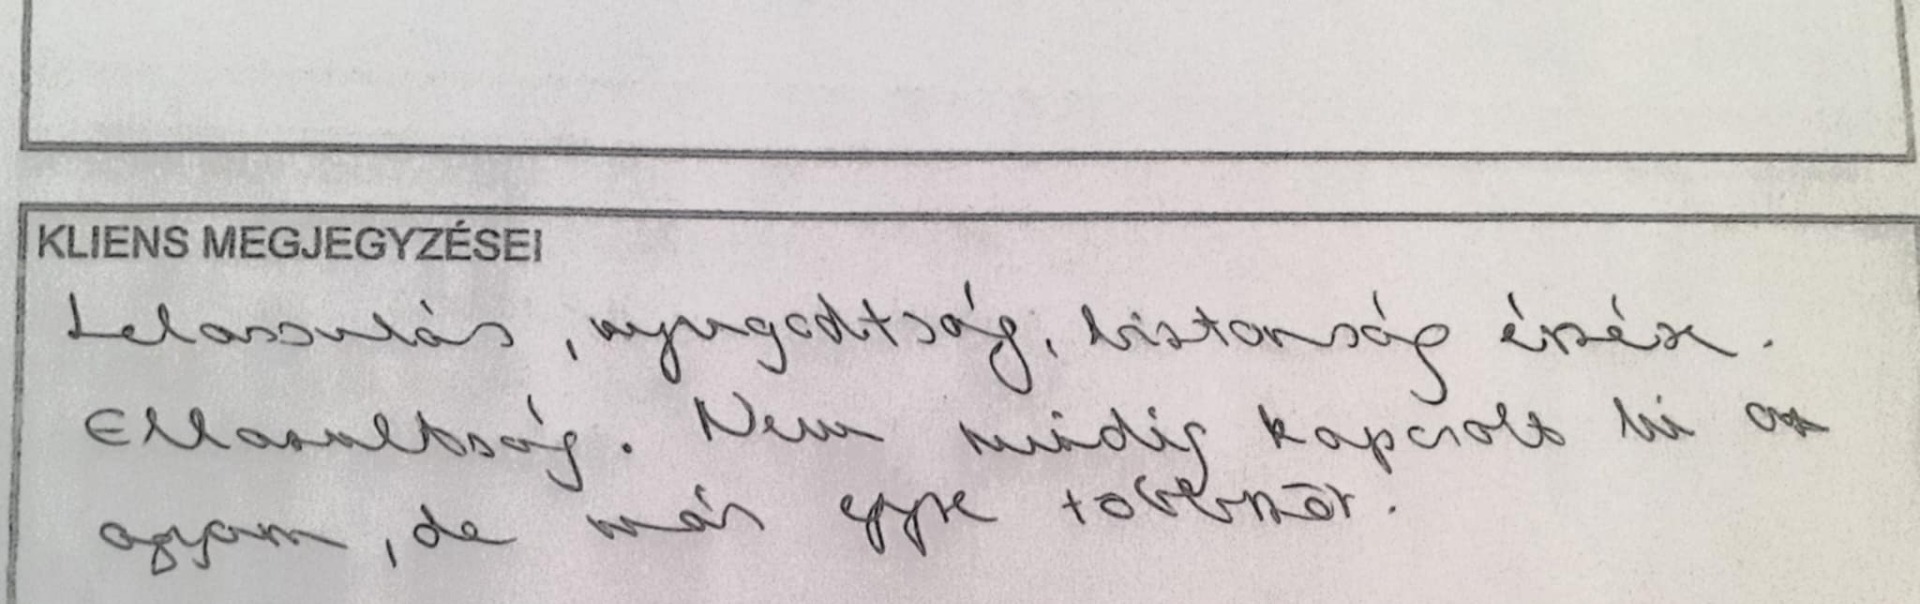 KLIENS MEGJEGYZÉSEI
Lelassulás, nyugodtság, biztonság érzése.
Ellazultság. Nem mindig kapcsolt ki az
agyam, de már egyre többször.